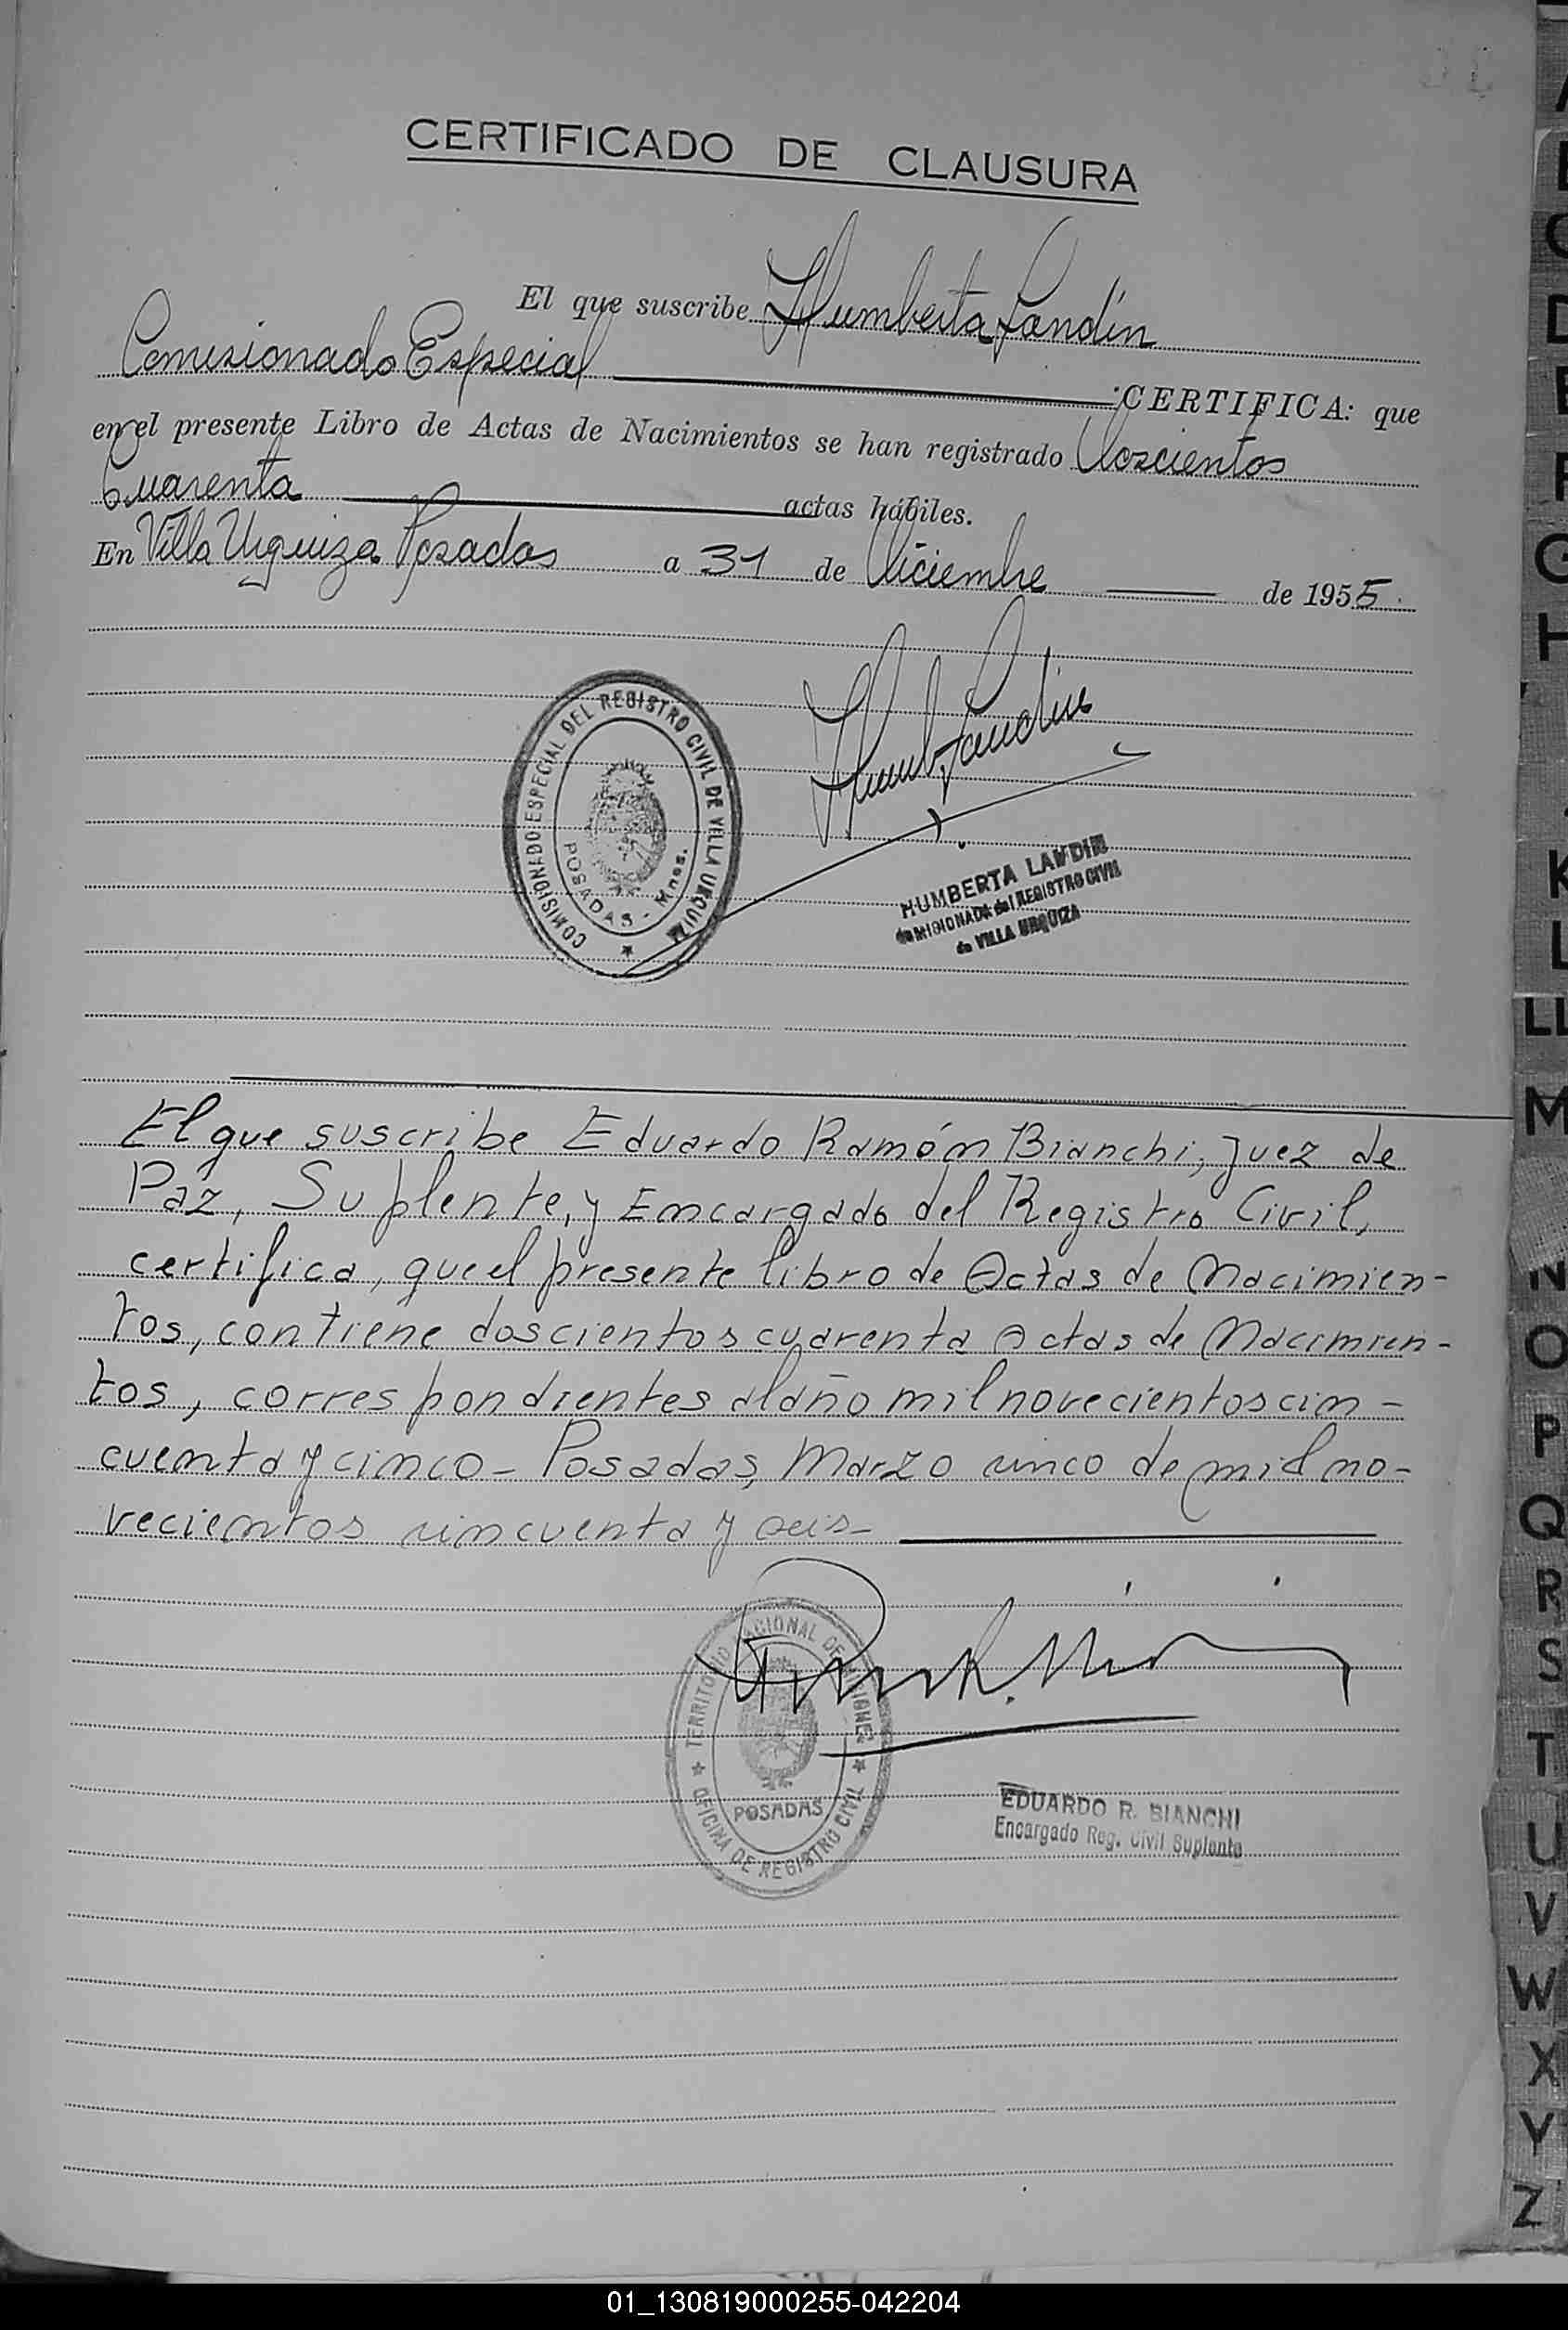 CERTIFICADO DE CLAUSURA
El que suscribe Humberta Landín
Comisionado Especial CERTIFICA: que
en el presente Libro de Actas de Nacimientos se han registrado Doscientos
Cuarenta actas hábiles.
En Villa Urquiza Posadas a 31 de Diciembre de 1955.
COMISIONADO ESPECIAL DEL REGISTRO CIVIL DE VILLA URQUIZA
POSADAS - Mnes.
Humb. Landin
HUMBERTA LANDIN
COMISIONADA del REGISTRO CIVIL
de VILLA URQUIZA
El que suscribe Eduardo Ramón Bianchi, Juez de
Paz, Suplente, y Encargado del Registro Civil,
certifica, que el presente libro de Actas de Nacimien-
tos, contiene doscientos cuarenta Actas de Nacimien-
tos, correspondientes al año mil novecientos cin-
cuenta y cinco - Posadas, Marzo cinco de mil no-
vecientos cincuenta y seis -
TERRITORIO NACIONAL DE MISIONES
POSADAS
OFICINA DE REGISTRO CIVIL
EDUARDO R. BIANCHI
Encargado Reg. Civil Suplente
G
H
K
L
LL
M
N
O
P
Q
R
S
T
U
V
W
X
Y
Z
01_130819000255-042204